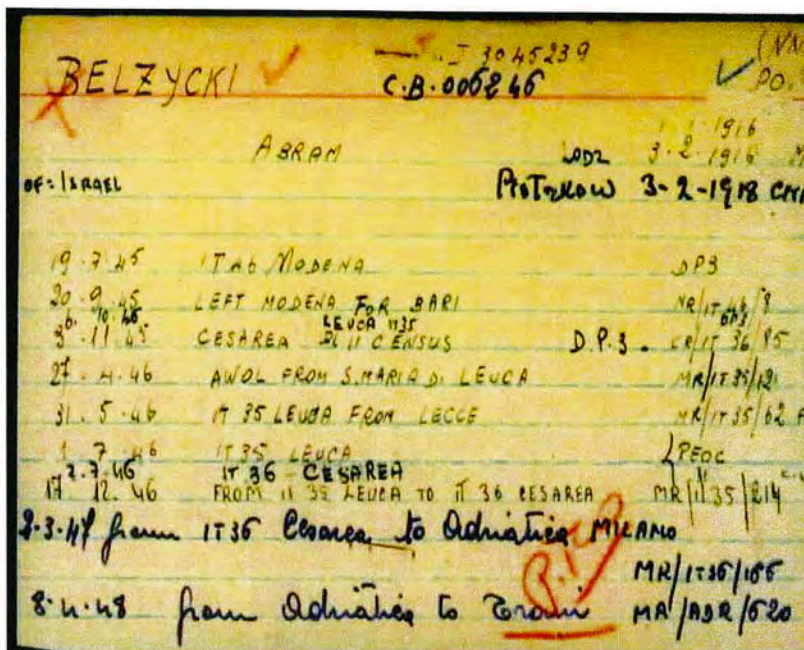 I 3045239 (NN
BELZYCKI C.B.006246 PO.
1 1 1916
ABRAM LODZ 3-2-1916 M
OF: ISRAEL PIOTRKOW 3-2-1918
19.7.45 IT 46 MODENA DP3
20.9.45 LEFT MODENA FOR BARI NR/IT 46/8
10.45 LEUCA IT35
3.11.45 CESAREA CENSUS D.P.3. IT 36/85
27.4.46 AWOL FROM S.MARIA DI LEUCA MR/IT35/121
31.5.46 IT 35 LEUCA FROM LECCE MR/IT35/62
1 7 46 IT 35 LEUCA PEOC
2.7.46 IT 36 - CESAREA
17.12.46 FROM IT 35 LEUCA TO IT 36 CESAREA MR/IT35/214
2-3-47 from IT36 Cesarea to Adriatica MILANO
MR/IT36/166
8.4.48 from Adriatica to Trani MR/ADR/620